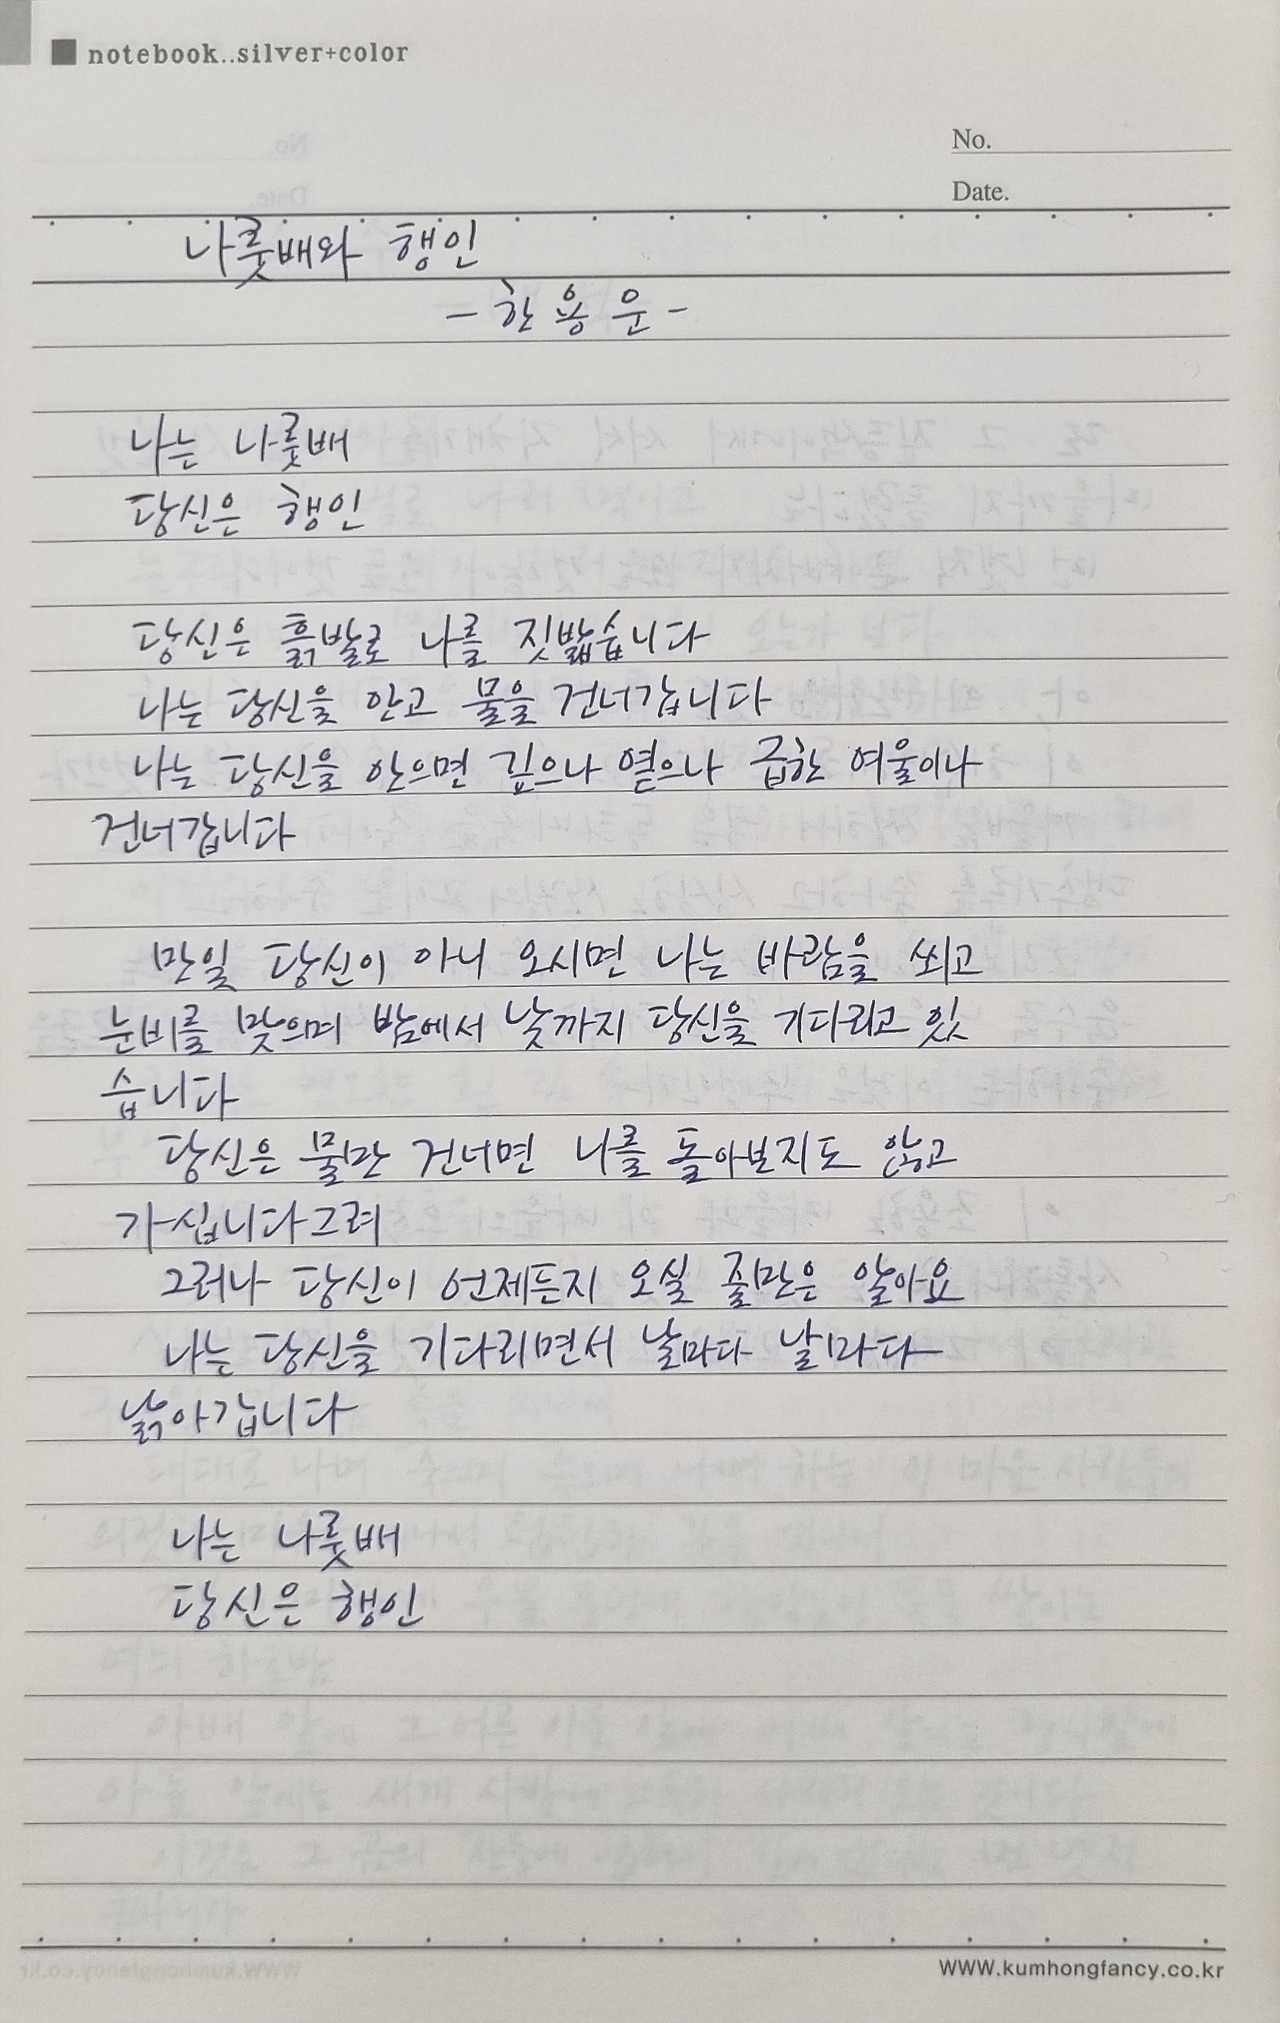 notebook..silver+color
No.
Date.
나룻배와 행인
- 한용운 -
나는 나룻배
당신은 행인
당신은 흙발로 나를 짓밟습니다
나는 당신을 안고 물을 건너갑니다
나는 당신을 안으면 깊으나 옅으나 급한 여울이나
건너갑니다
만일 당신이 아니 오시면 나는 바람을 쐬고
눈비를 맞으며 밤에서 낮까지 당신을 기다리고 있
습니다
당신은 물만 건너면 나를 돌아보지도 않고
가십니다그려
그러나 당신이 언제든지 오실 줄만은 알아요
나는 당신을 기다리면서 날마다 날마다
낡아갑니다
나는 나룻배
당신은 행인
www.kumhongfancy.co.kr